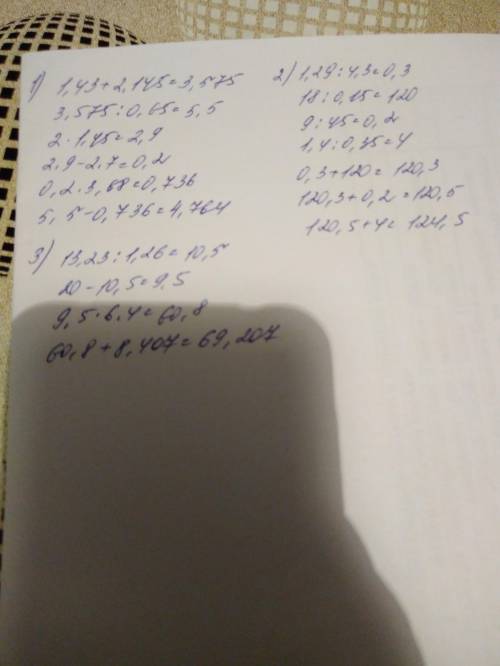 1) 1,43+2,145=3,575
3,575:0,65=5,5
2·1,45=2,9
2,9-2,7=0,2
0,2·3,68=0,736
5,5-0,736=4,764
2) 1,29:4,3=0,3
18:0,15=120
9:45=0,2
1,4:0,35=4
0,3+120=120,3
120,3+0,2=120,5
120,5+4=124,5
3) 13,23:1,26=10,5
20-10,5=9,5
9,5·6,4=60,8
60,8+8,407=69,207